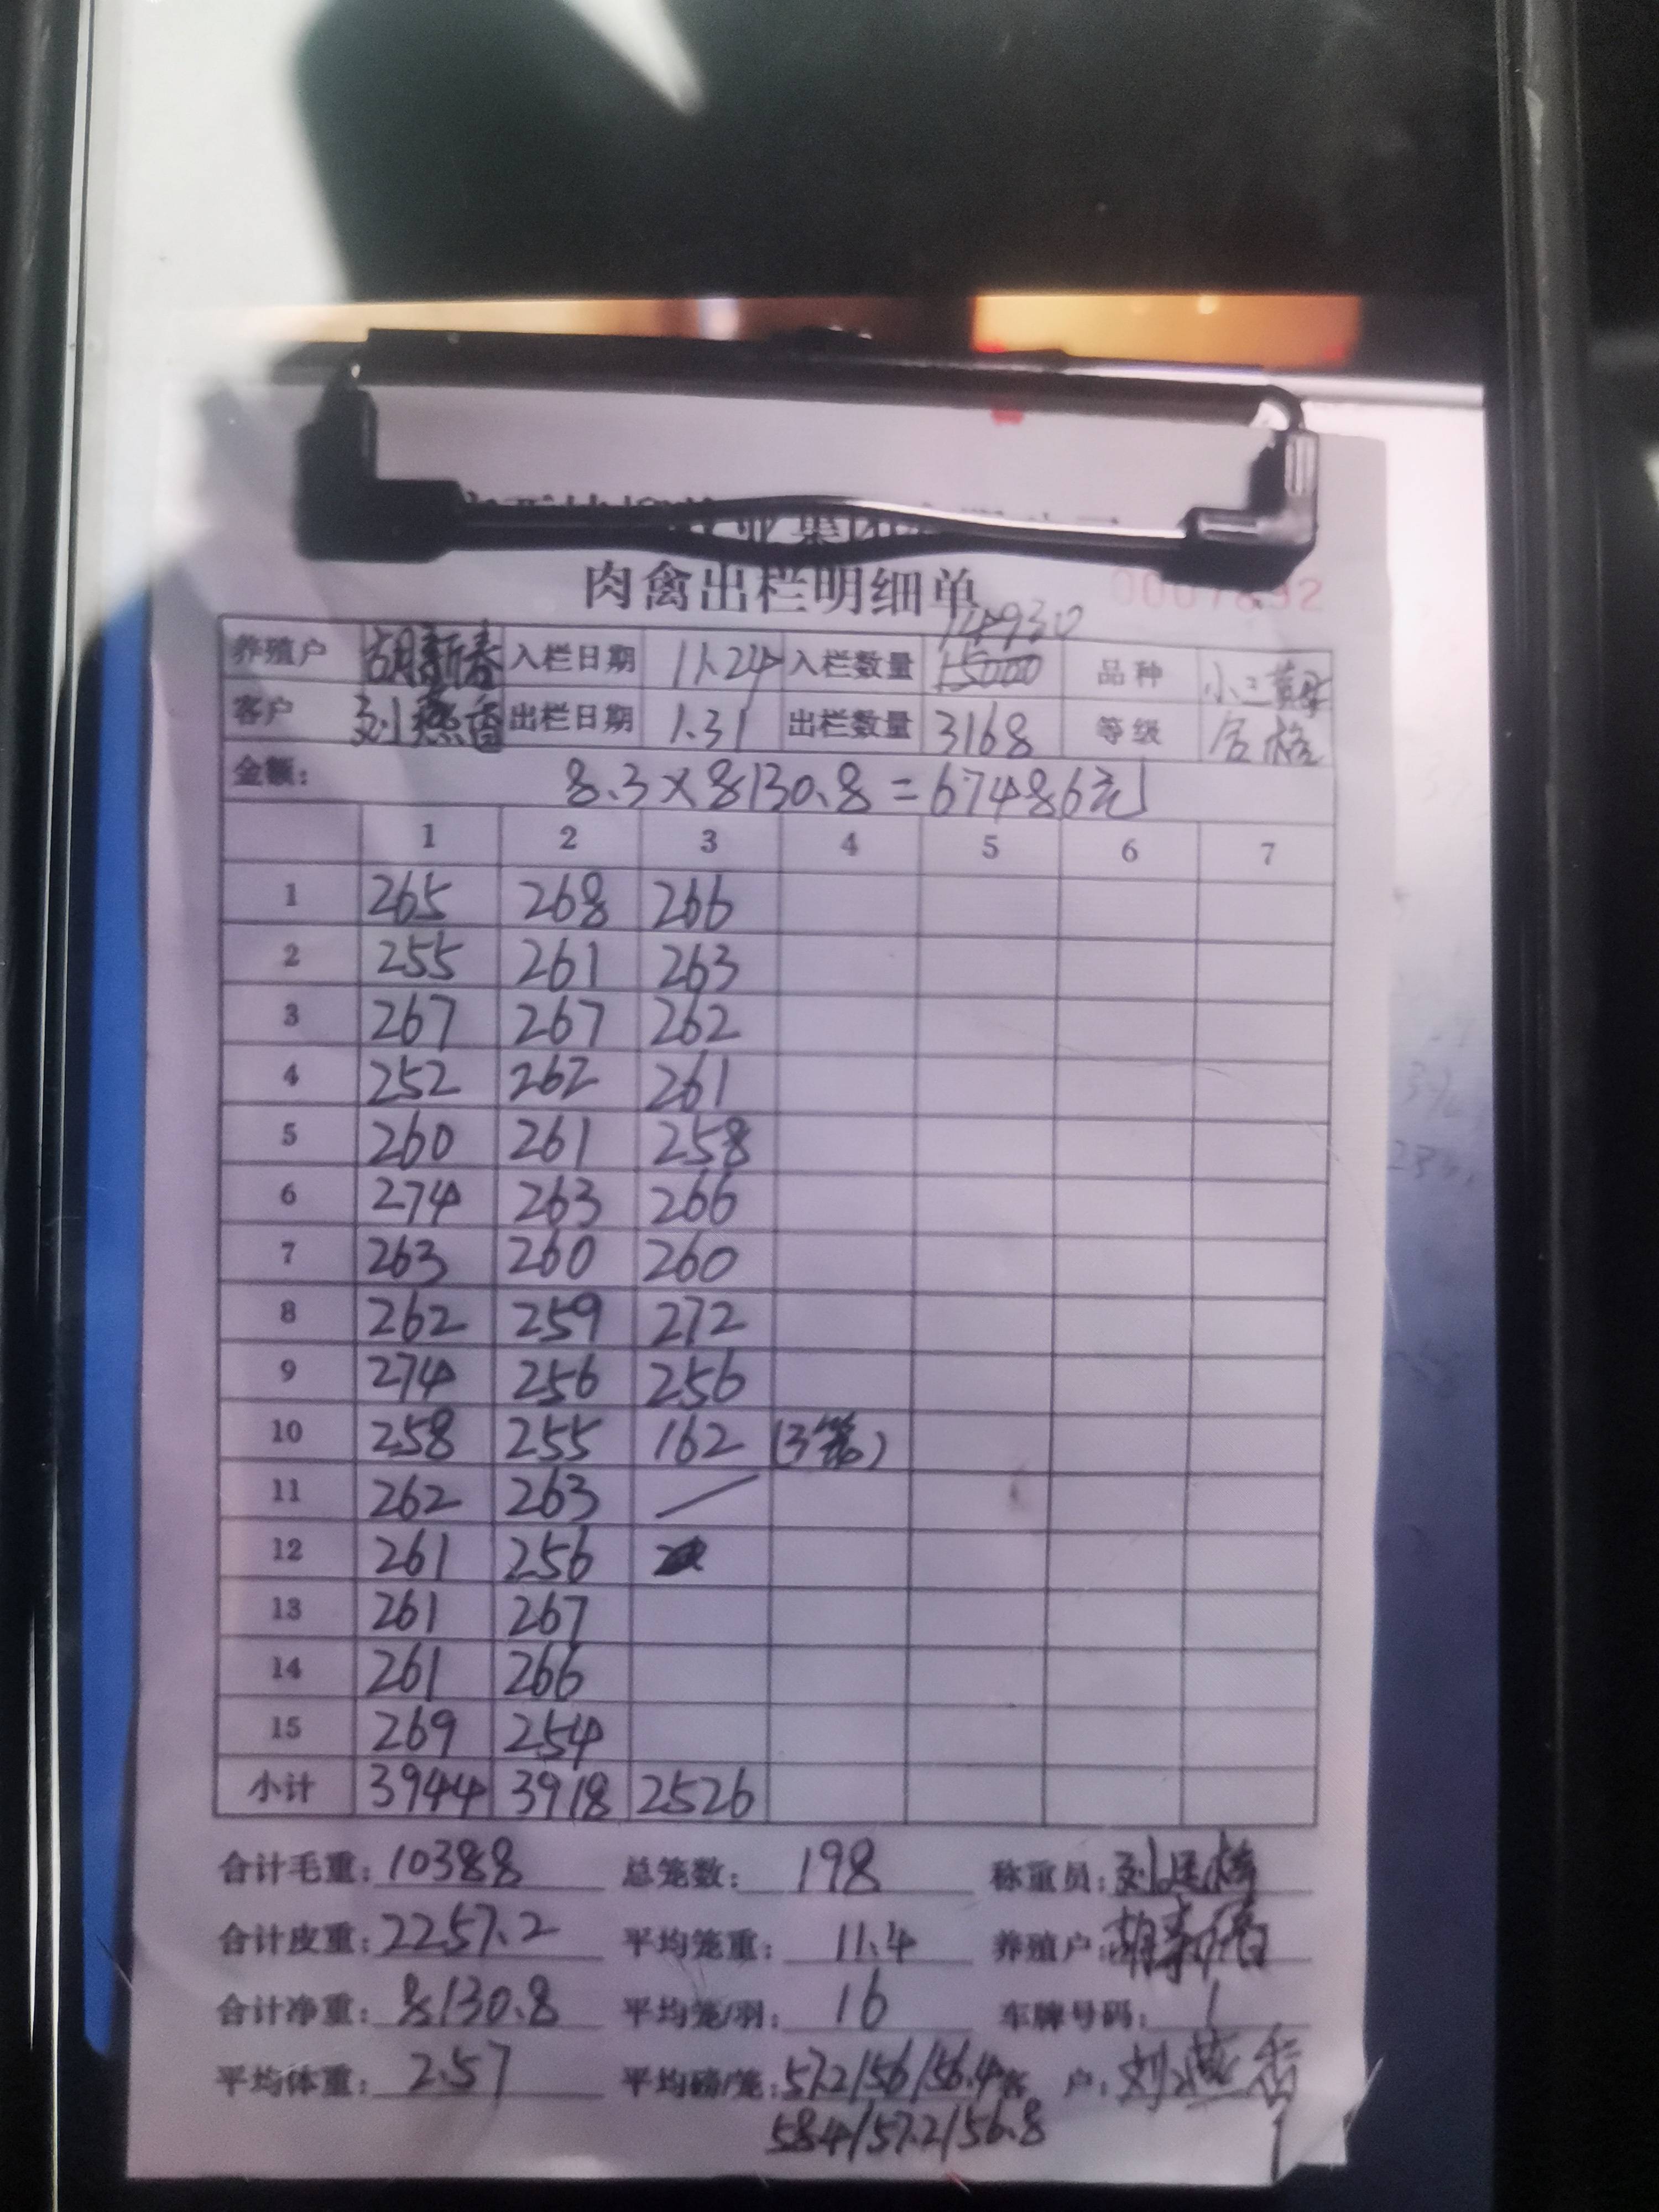 业集团
肉禽出栏明细单
14930
养殖户 胡新春 入栏日期 11.24 入栏数量 15000 品种 小三黄
客户 刘燕香 出栏日期 1.31 出栏数量 3168 等级 合格
金额: 8.3×8130.8=67486元
1 2 3 4 5 6 7
1 265 268 266
2 255 261 263
3 267 267 262
4 252 262 261
5 260 261 258
6 274 263 266
7 263 260 260
8 262 259 272
9 274 256 256
10 258 255 162 (3笼)
11 262 263
12 261 256
13 261 267
14 261 266
15 269 254
小计 3944 3918 2526
合计毛重: 10388 总笼数: 198 称重员:
合计皮重: 2257.2 平均笼重: 11.4 养殖户: 胡新春
合计净重: 8130.8 平均笼/羽: 16 车牌号码: 1
平均体重: 2.57 平均磅/笼: 57.2/56/56.4 客户: 刘燕香
58.4/57.2/56.8